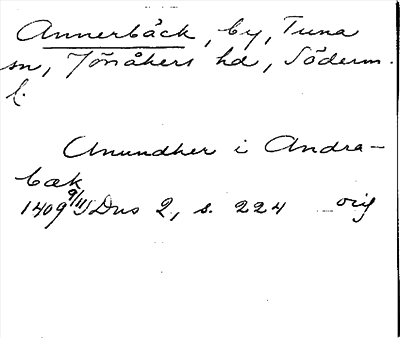 Annerbäck, by, Tuna
sn, Jönåkers hd, Söderm.
l.
Anundher i Andra-
bæk
1409 9/11 Dns 2, s. 224 orig